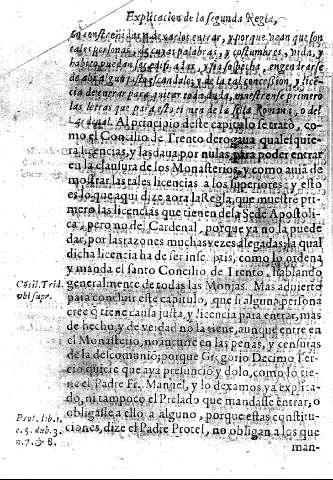 Explicacion de la segunda Regla,
son constreñidas a dexarlos entrar, y porque vean que son
tales personas, de cuyas palabras, y costumbres, vida, y
habito puedan ser edificadas, y sin sospecha, engendrarse
de ahi algun justo escandalo: y de la tal concession, y licē
cia de entrar para quitar toda duda, muestrense primero
las letras que para esto tienen de la silla Romana, o del
Cardenal. Al principio deste capitulo se tratò, co-
mo el Concilio de Trento derogaua qualesquie
ra licencias, y las daua por nulas, para poder entrar
en la clausura de los Monasterios, y como auia de
mostrar las tales licencias a los superiores: y esto
es lo que aqui dize aora la Regla, que muestre pri-
mero las licencias que tienen de la Sede Apostoli-
ca, pero no del Cardenal, porque ya no la puede
dar, por las razones muchas vezes alegadas; la qual
dicha licencia ha de ser inscriptis, como lo ordena
y manda el santo Concilio de Trento, hablando
generalmente de todas las Monjas. Mas aduierto
para concluir este capitulo, que si alguna persona
cree q̃ tiene causa justa, y licencia para entrar, mas
de hecho, y de verdad no la tiene, aunque entre en
el Monasterio, no incurre en las penas, y censuras
de la descomunio; porque Gregorio Decimo ter-
cio quiere que aya presuncio y dolo, como lo tie-
ne el Padre Fr. Manuel, y lo dexamos ya explica-
do, ni tampoco el Prelado que mandasse entrar, o
obligasse a ello a alguno, porque estas constitu-
ciones, dize el Padre Protel, no obligan a los que
man-
Cōcil. Trid.
vbi supr.
Prot. lib. 1.
c. 5. dub. 3.
n. 7. & 8.